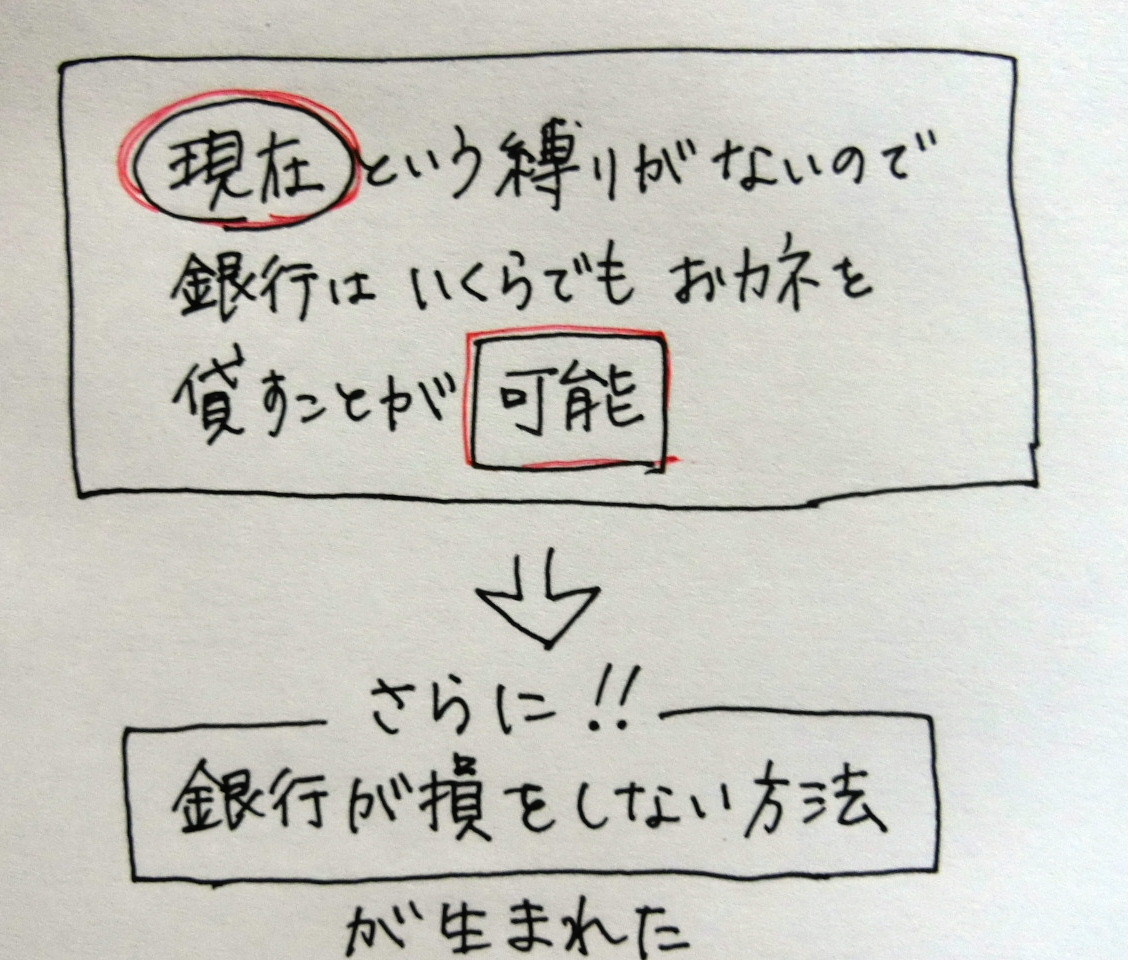 現在という縛りがないので
銀行は いくらでも おカネを
貸すことが 可能
さらに!!
銀行が損をしない方法
が生まれた